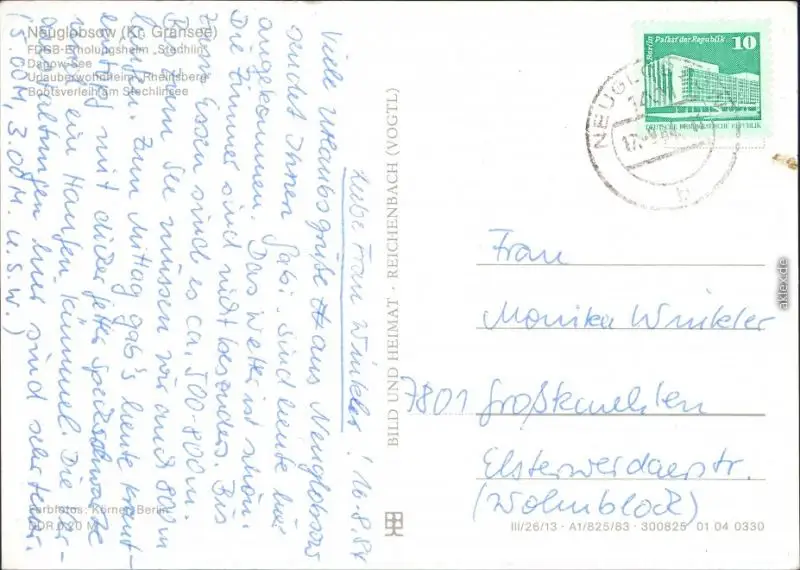 Neuglobsow (Kr. Gransee)
FDGB-Erholungsheim „Stechlin"
Dagow-See
Urlauberwohnheim „Rheinsberg"
Bootsverleih am Stechlinsee
Liebe Frau Winkler! 16.8.84
Viele Urlaubsgrüße aus Neuglobsow
sendet Ihnen Gabi. Sind heute hier
angekommen. Das Wetter ist schön.
Die Zimmer sind nicht besonders. Bis
zum Essen sind es ca. 500-800m.
Bis zum See müssen wir auch 800m
laufen. Zum Mittag gab's heute Kraut-
eintopf mit dicker fetter Speckschwarte
und ein Haufen Kümmel. Die Ver-
anstaltungen hier sind sehr teuer.
(5.00M, 3.00M. u.s.w.)
Farbfotos: Körner, Berlin
DDR 0,20 M
BILD UND HEIMAT · REICHENBACH (VOGTL)
Berlin Palast der Republik
10
DEUTSCHE DEMOKRATISCHE REPUBLIK
NEUGLOBSOW
b
Frau
Monika Winkler
7801 Großkmehlen
Elsterwerdaerstr.
(Wohnblock)
III/26/13 · A1/825/83 · 300825 01 04 0330
aklex.de